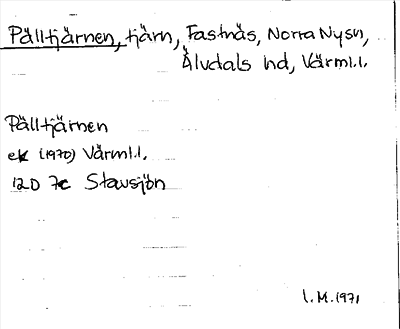 Pälltjärnen, tjärn, Fastnäs, Norra Nysn,
Älvdals hd, Värml.l.
Pälltjärnen
ek (1970) Värml.l.
12D 7c Stavsjön
l.M. 1971